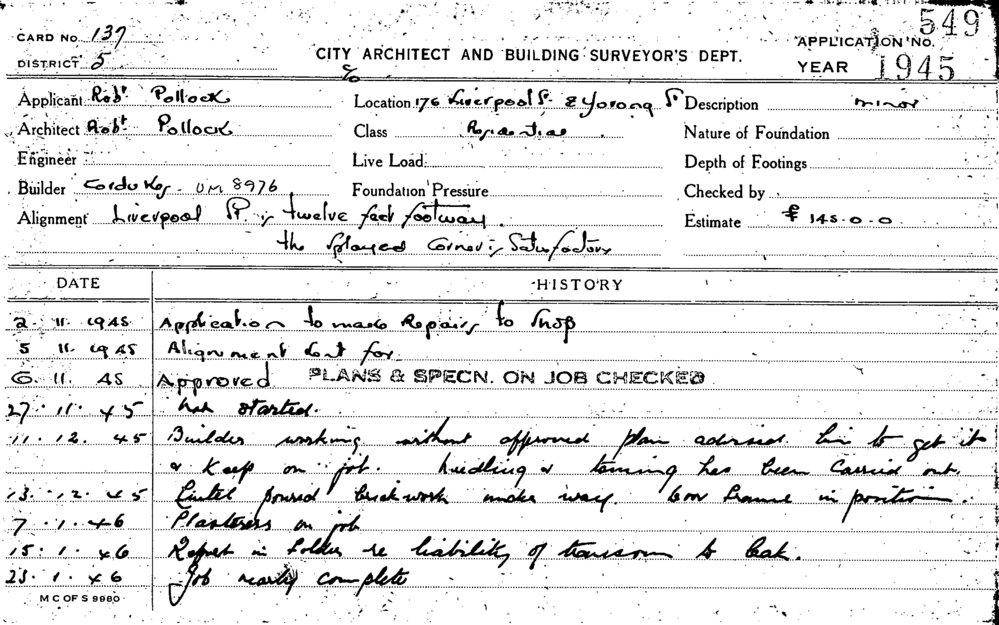 549
CARD No. 137
APPLICATION No.
DISTRICT 5
CITY ARCHITECT AND BUILDING SURVEYOR'S DEPT.
YEAR 1945
c/o
Applicant Robt. Pollock
Location 176 Liverpool St. & Yurong St
Description minor
Architect Robt. Pollock
Class Residential
Nature of Foundation
Engineer
Live Load
Depth of Footings
Builder UM 8976
Foundation Pressure
Checked by
Alignment Liverpool St is twelve feet footway.
Estimate £ 145-0-0
the splayed corner is satisfactory
DATE HISTORY
2. 11. 1945 Application to make Repairs to Shop
5 11. 1945 Alignment sent for.
6. 11. 45 Approved PLANS & SPECN. ON JOB CHECKED
27. 11. 45 Not started.
11. 12. 45 Builder working without approved plan advised him to get it
& keep on job. & has been carried out.
13. 12. 45 Lintel poured brickwork under way. frame in position.
7. 1. 46 Plasterers on job
15. 1. 46 Report in folder re liability of transom to leak.
23. 1. 46 Job nearly complete
M C OF S 9980